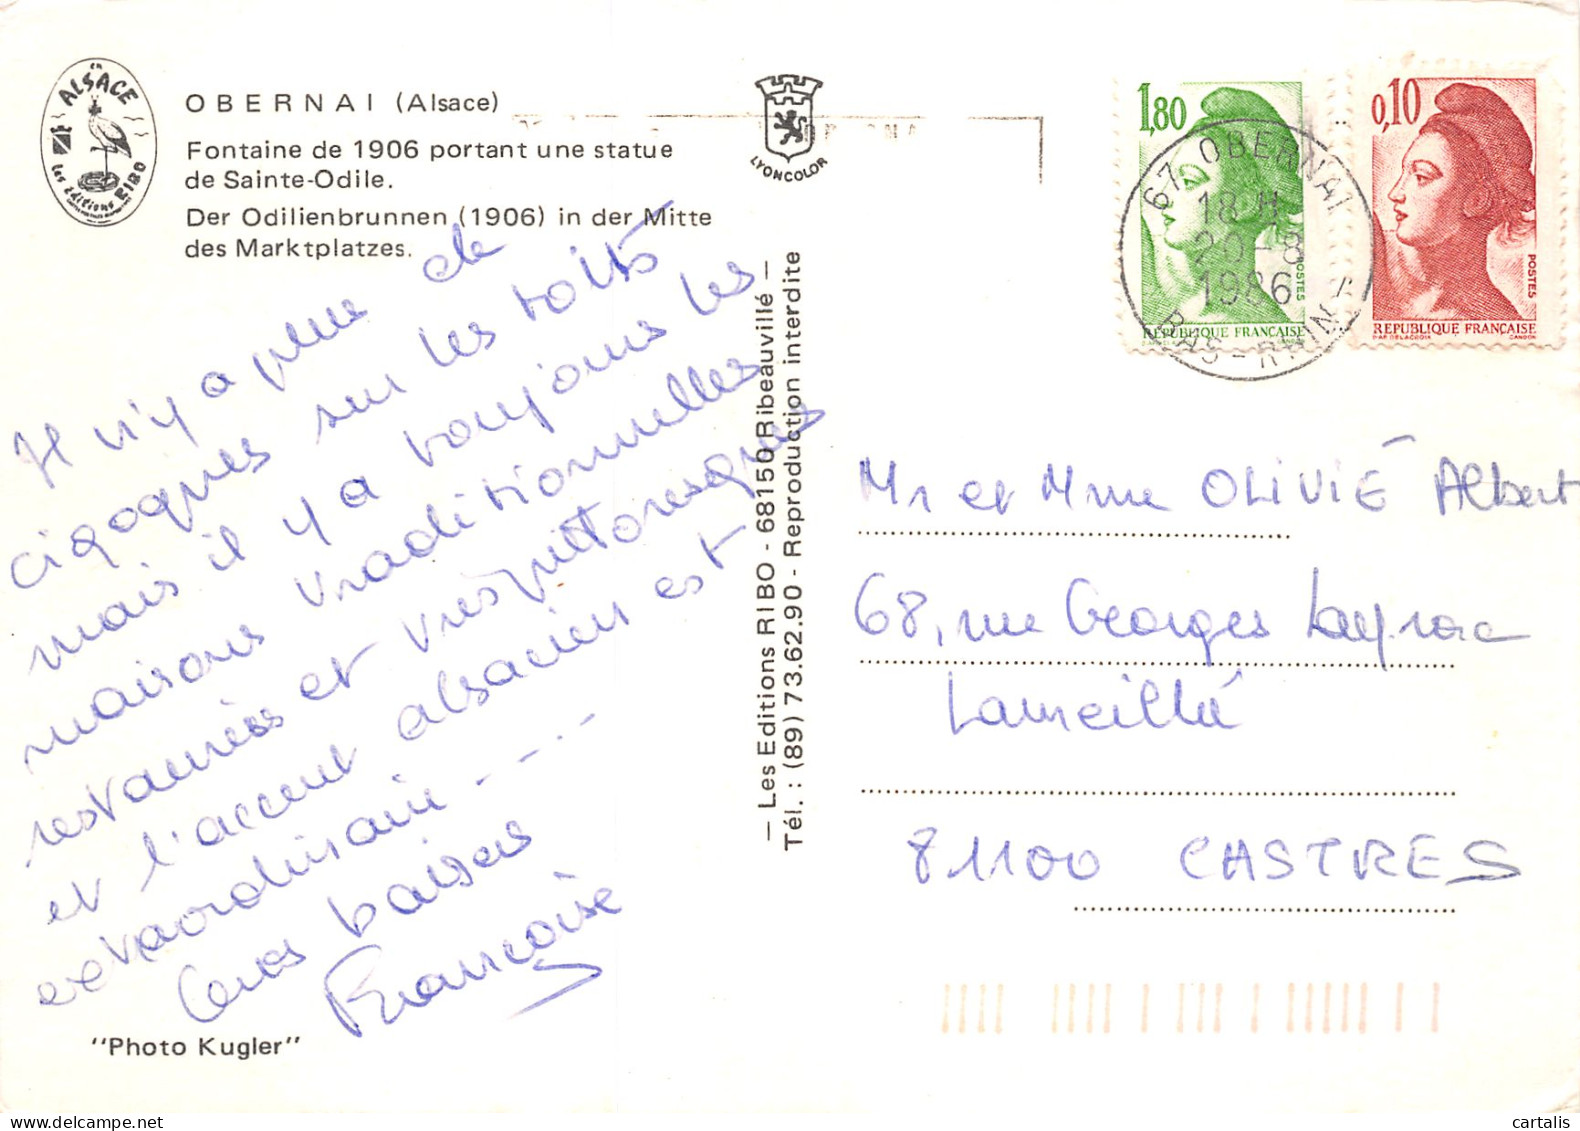 en
ALSACE
les éditions RIBO
OBERNAI (Alsace)
Fontaine de 1906 portant une statue
de Sainte-Odile.
Der Odilienbrunnen (1906) in der Mitte
des Marktplatzes.
LYONCOLOR
Il n'y a plus de
cigognes sur les toits
mais il y a toujours les
maisons traditionnelles
restaurées et très pittoresques
et l'accent alsacien est
extraordinaire ----
Gros baisers
Françoise
"Photo Kugler"
— Les Editions RIBO - 68150 Ribeauvillé —
Tél. : (89) 73.62.90 - Reproduction interdite
1,80
POSTES
RÉPUBLIQUE FRANÇAISE
GANDON
0,10
POSTES
RÉPUBLIQUE FRANÇAISE
D'AP. DELACROIX GANDON
67 OBERNAI
18 H
20-8
1986
BAS-RHIN
Mr et Mme OLIVIÉ Albert
68, rue Georges Layrac
Lameilhé
81100 CASTRES
cartalis